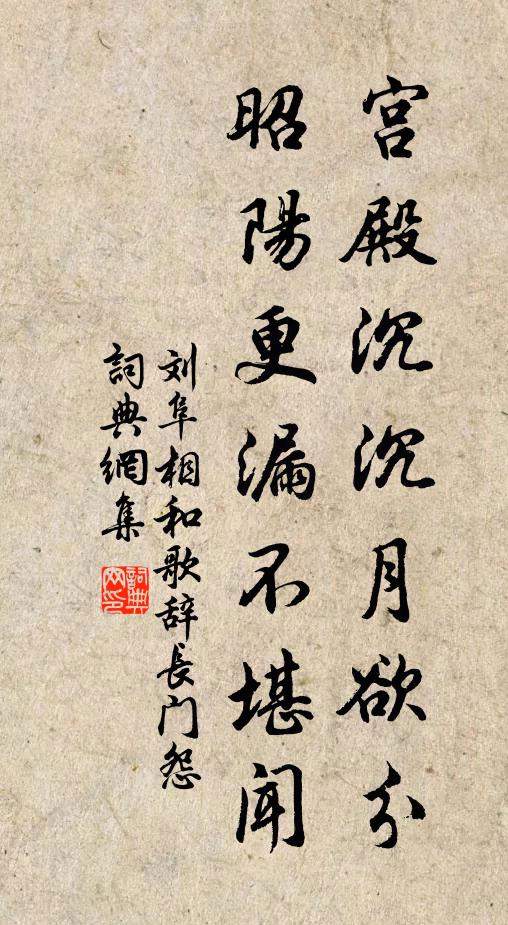 宫殿沉沉月欲分
昭陽更漏不堪聞
刘阜相和歌辞長门怨
詞典網集
詞典網印